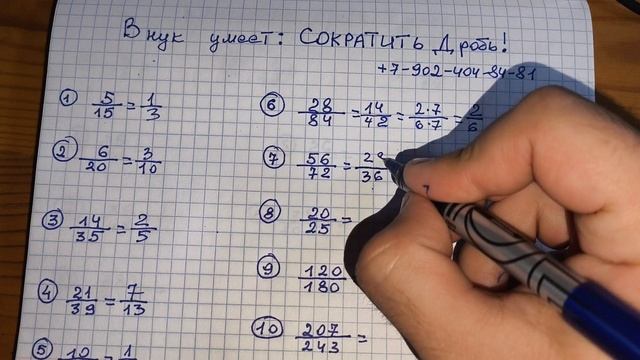 Внук умеет: СОКРАТИТЬ Дробь!
+7-902-404-84-81
① 5/15 = 1/3
② 6/20 = 3/10
③ 14/35 = 2/5
④ 21/39 = 7/13
⑤ 10 = 1
⑥ 28/84 = 14/42 = 2·7/6·7 = 2/6
⑦ 56/72 = 28/36
⑧ 20/25 =
⑨ 120/180
⑩ 207/243 =